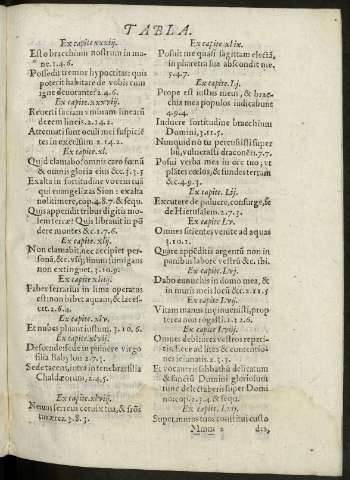 TABLA.
Ex capite xxxiij.
Esto bracchium nostrum in ma-
ne. 1.4.6.
Possedit tremor hypocritas: quis
poterit habitare de vobis cum
igne deuorante 2.4.6.
Ex capite xxxviij.
Reuerti faciam vmbram linearũ
decem lineis. 2.14.2.
Attenuati sunt oculi mei suspiciẽ
tes in excelsum 2.14.2.
Ex capite. xl.
Quid clamabo? omnis caro fœnũ
& omnis gloria eius &c. 3.3.5
Exalta in fortitudine vocem tuã
qui euangelizas Sion: exalta
noli timere, cop. 4.8.7. & sequ.
Quis appendit tribus digitis mo-
lem terræ? Quis librauit in põ
dere montes &c. 2.1.7.6.
Ex capite. xlij.
Non clamabit, nec accipiet per-
sonã, &c. vsq; linum fumigans
non extinguet. 3.10.9.
Ex capite xliiij.
Faber ferrarius in lima operatus
est non bibet aquam, & lasses-
cet. 2.6.4.
Ex capite. xlv.
Et nubes pluant iustum. 3.10.6.
Ex capite. xlvij.
Descende sede in puluere virgo
filia Babylon 2.7.3.
Sede tacens, intra in tenebras filia
Chaldæorum, 2.4.5.
Ex capite. xlviij.
Neruus ferreus ceruix tua, & frõs
tua ærea. 3.8.3.
Ex capite. xlix.
Posuit me quasi sagittam electã,
in pharetra sua abscondit me.
5.4.7.
Ex capite. Lj.
Prope est iustus meus, & brac-
chia mea populos iudicabunt
4.9.4.
Induere fortitudine bracchium
Domini, 3.11.5.
Nunquid nõ tu percussisti super
bũ, vulnerasti draconẽ 1.7.7.
Posui verba mea in ore tuo; vt
plãtes cœlos, & fundes terram
&c. 4.9.3.
Ex capite. Lij.
Excutere de puluere, consurge, se
de Hierusalem. 2.7.3.
Ex capite Lv.
Omnes sitientes venite ad aquas
3.10.2.
Quare appẽditis argentũ non in
panibus labore vestrũ &c. ibi.
Ex capite. Lvj.
Dabo eunuchis in domo mea, &
in muris meis locũ &c. 2.11.5
Ex capite. Lvij.
Vitam manus tuę inuenisti, prop
terea non rogasti. 1.1 2.6.
Ex capite. Lviij.
Omnes debitores vestros repeti-
tis. Ecce ad lites & contentio-
nes ieiunatis. 2.3.3.
Et vocaueris sabbathũ delicatum
& sanctũ Domini gloriosum
tunc delectaberis super Domi
no: cop. 2.3.4. & sequ.
Ex capite. Lxij.
Super muros tuos constitui custo
Mmm 2 des,